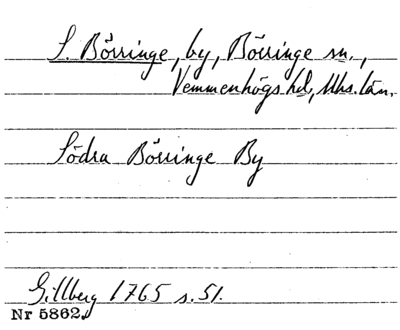 S. Börringe, by, Börringe sn.,
Vemmenhögs hd, Mhs. län.
Södra Börringe By
Gillberg 1765 s. 51.
Nr 5862.